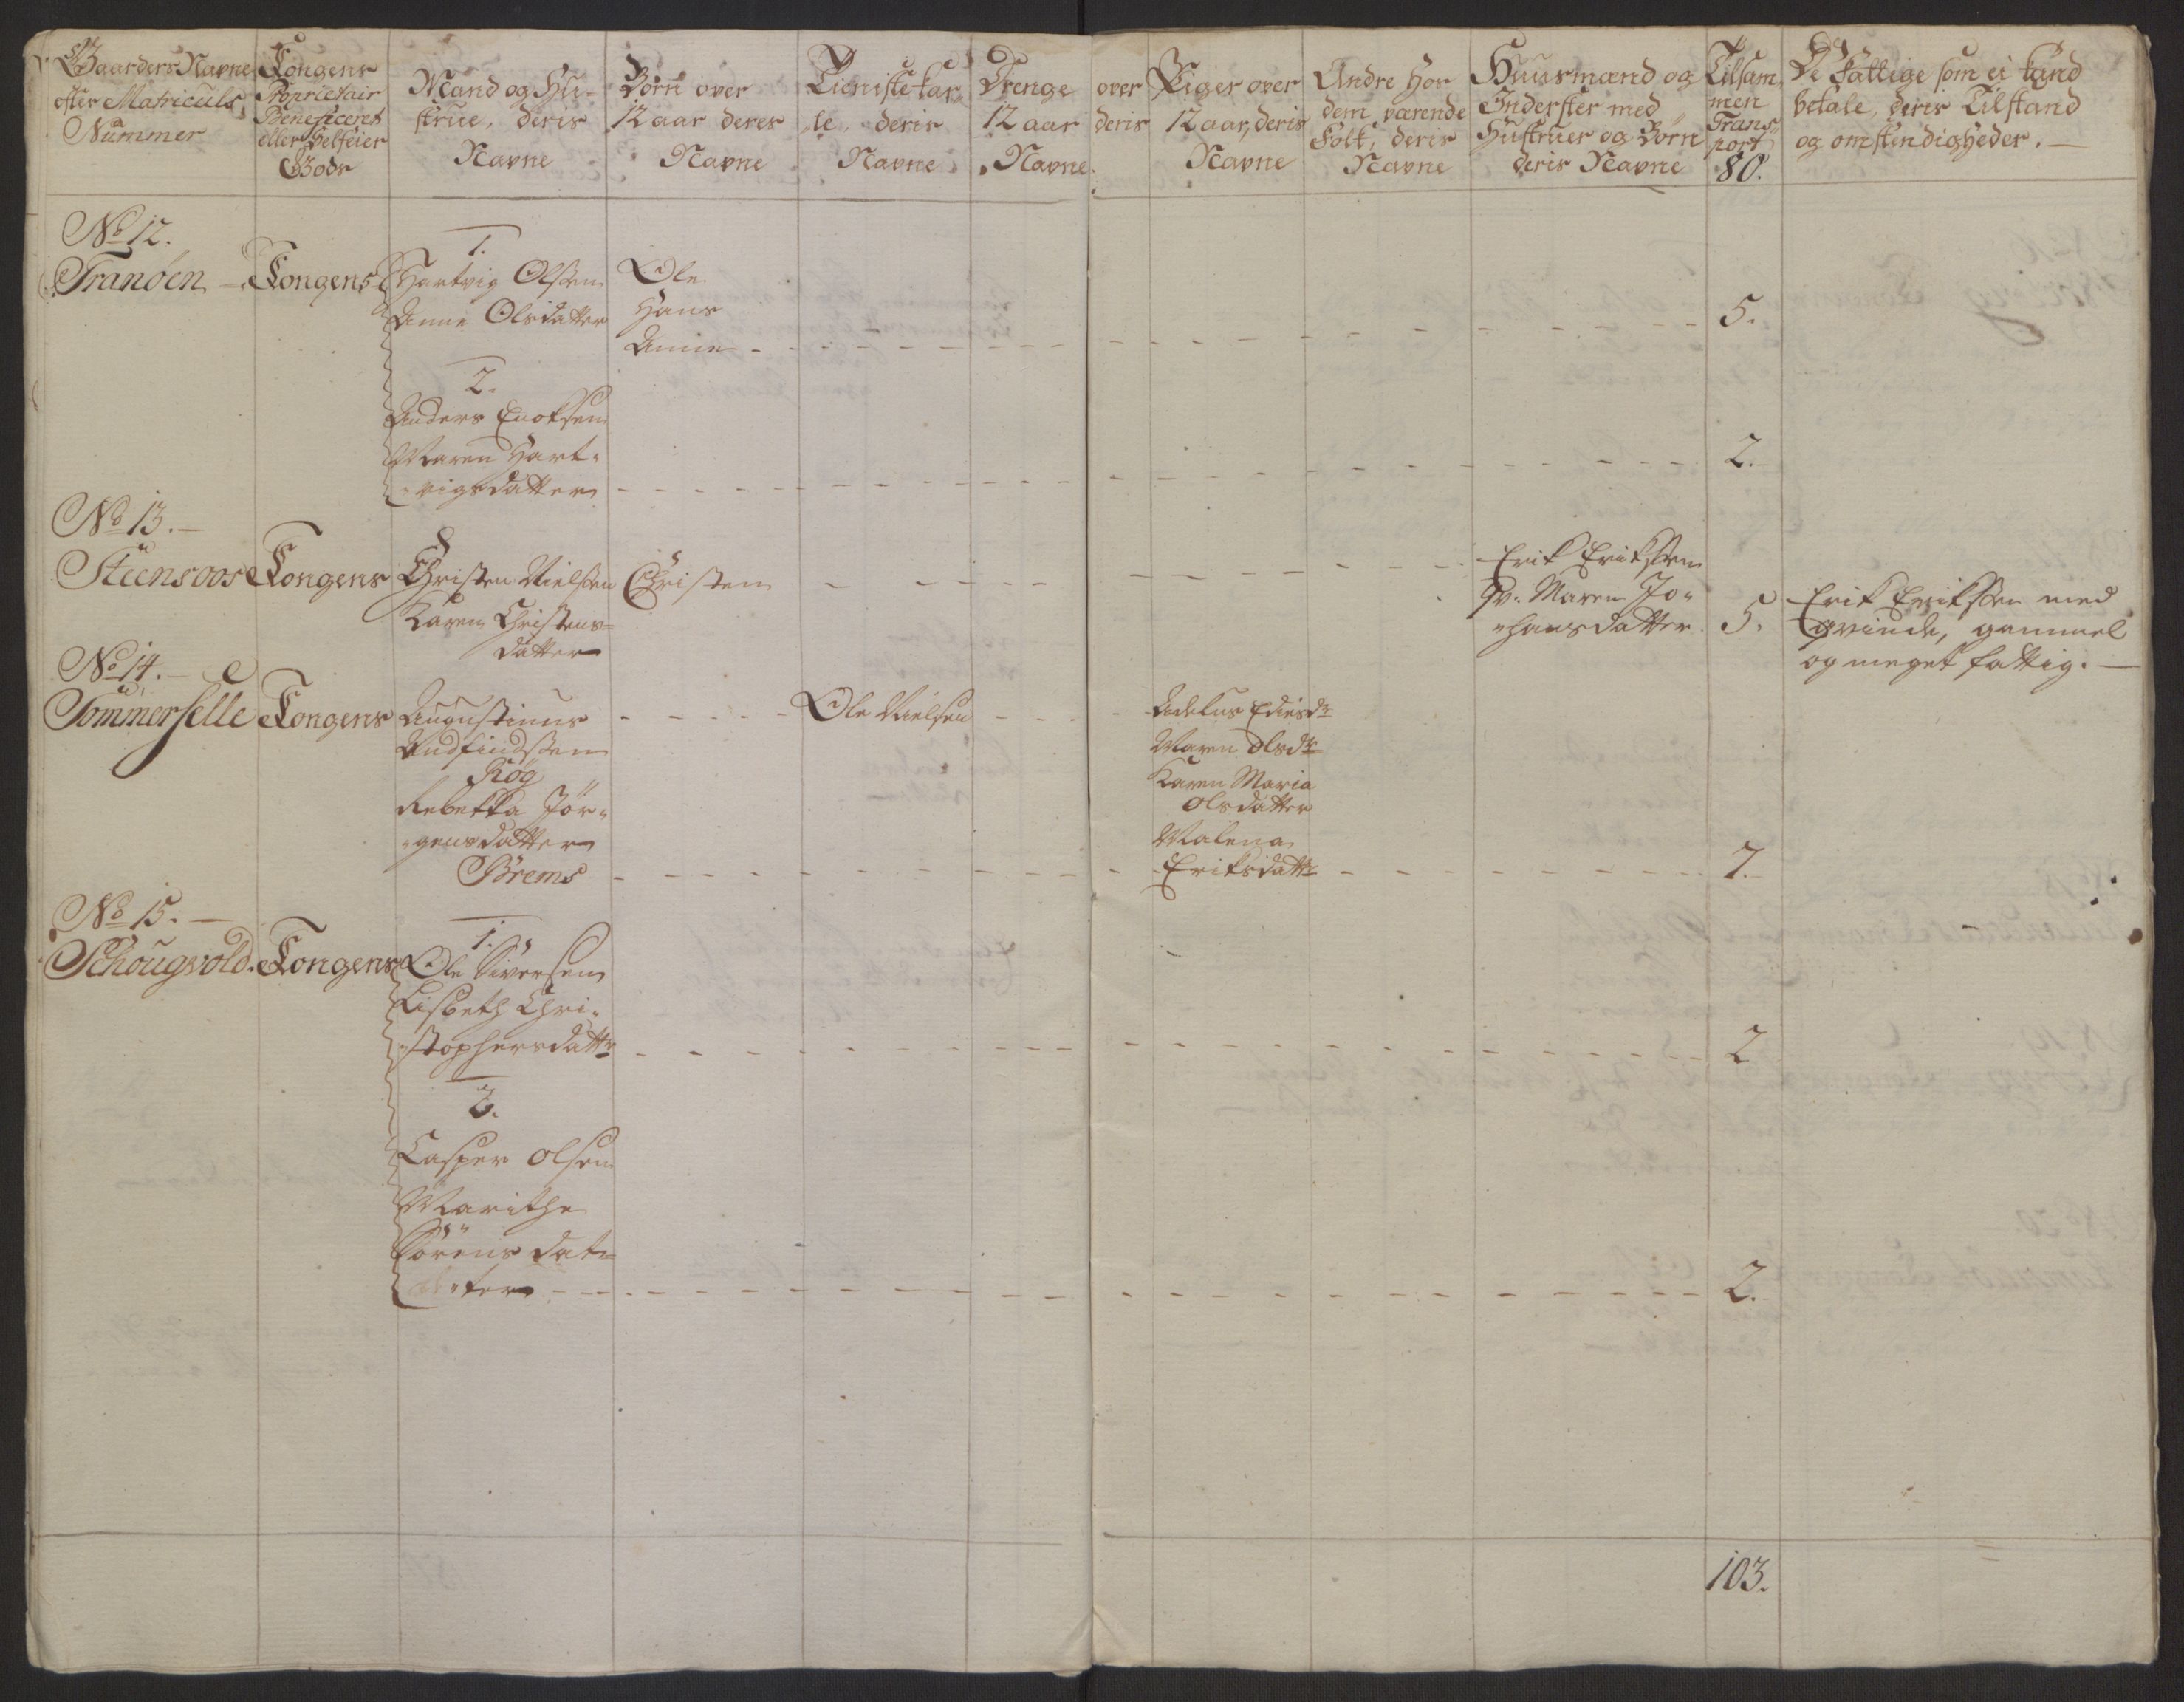 Gaarders Navne
efter Matriculs
Nummer
Kongens
Proprietair
Beneficent
eller Selfeier
Gods
Mand og Hu-
strue, deris
Navne
Børn over
12 aar deres
Navne
Tieniste Kar-
le, deris
Navne
Drenge over
12 aar deris
Navne
Piger over
12 aar, deris
Navne
Andre hos
dem værende
Folk, deris
Navne
Huusmænd og
Inderster med
Hustruer og Børn
deris Navne
Tilsam
men
Trans
port
80.
De Fattige som ei kand
betale, deris Tilstand
og omstendigheder. —
No 12.
Tranøen - Kongens
1.
Hartvig Olsen
Anne Olsdatter
Ole
Hans
Anne
5.
2.
Anders Enoksen
Maren Hart-
-vigsdatter
2.
No 13. —
Steensoos Kongens
Christen Nielsen
Karen Christens-
datter
Christen
Erik Eriksen
Qv. Maren Jo-
-hansdatter
5.
Erik Eriksen med
qvinde, gammel
og meget fattig. —
No 14. —
Tømmerselle Kongens
Augustinus
Andfindsen
Røg
Rebekka Jør-
-gensdatter
Brems
Ole Nielsen
Maren Olsdr
Karen Maria
Olsdatter
Malena
Eriksdattr
7.
No 15. —
Schougvold. Kongens
1.
Ole Siversen
Lisbeth Chri-
-stophersdattr
2
2.
Casper Olsen
Marithe
Sörens dat-
-ter
2.
103.